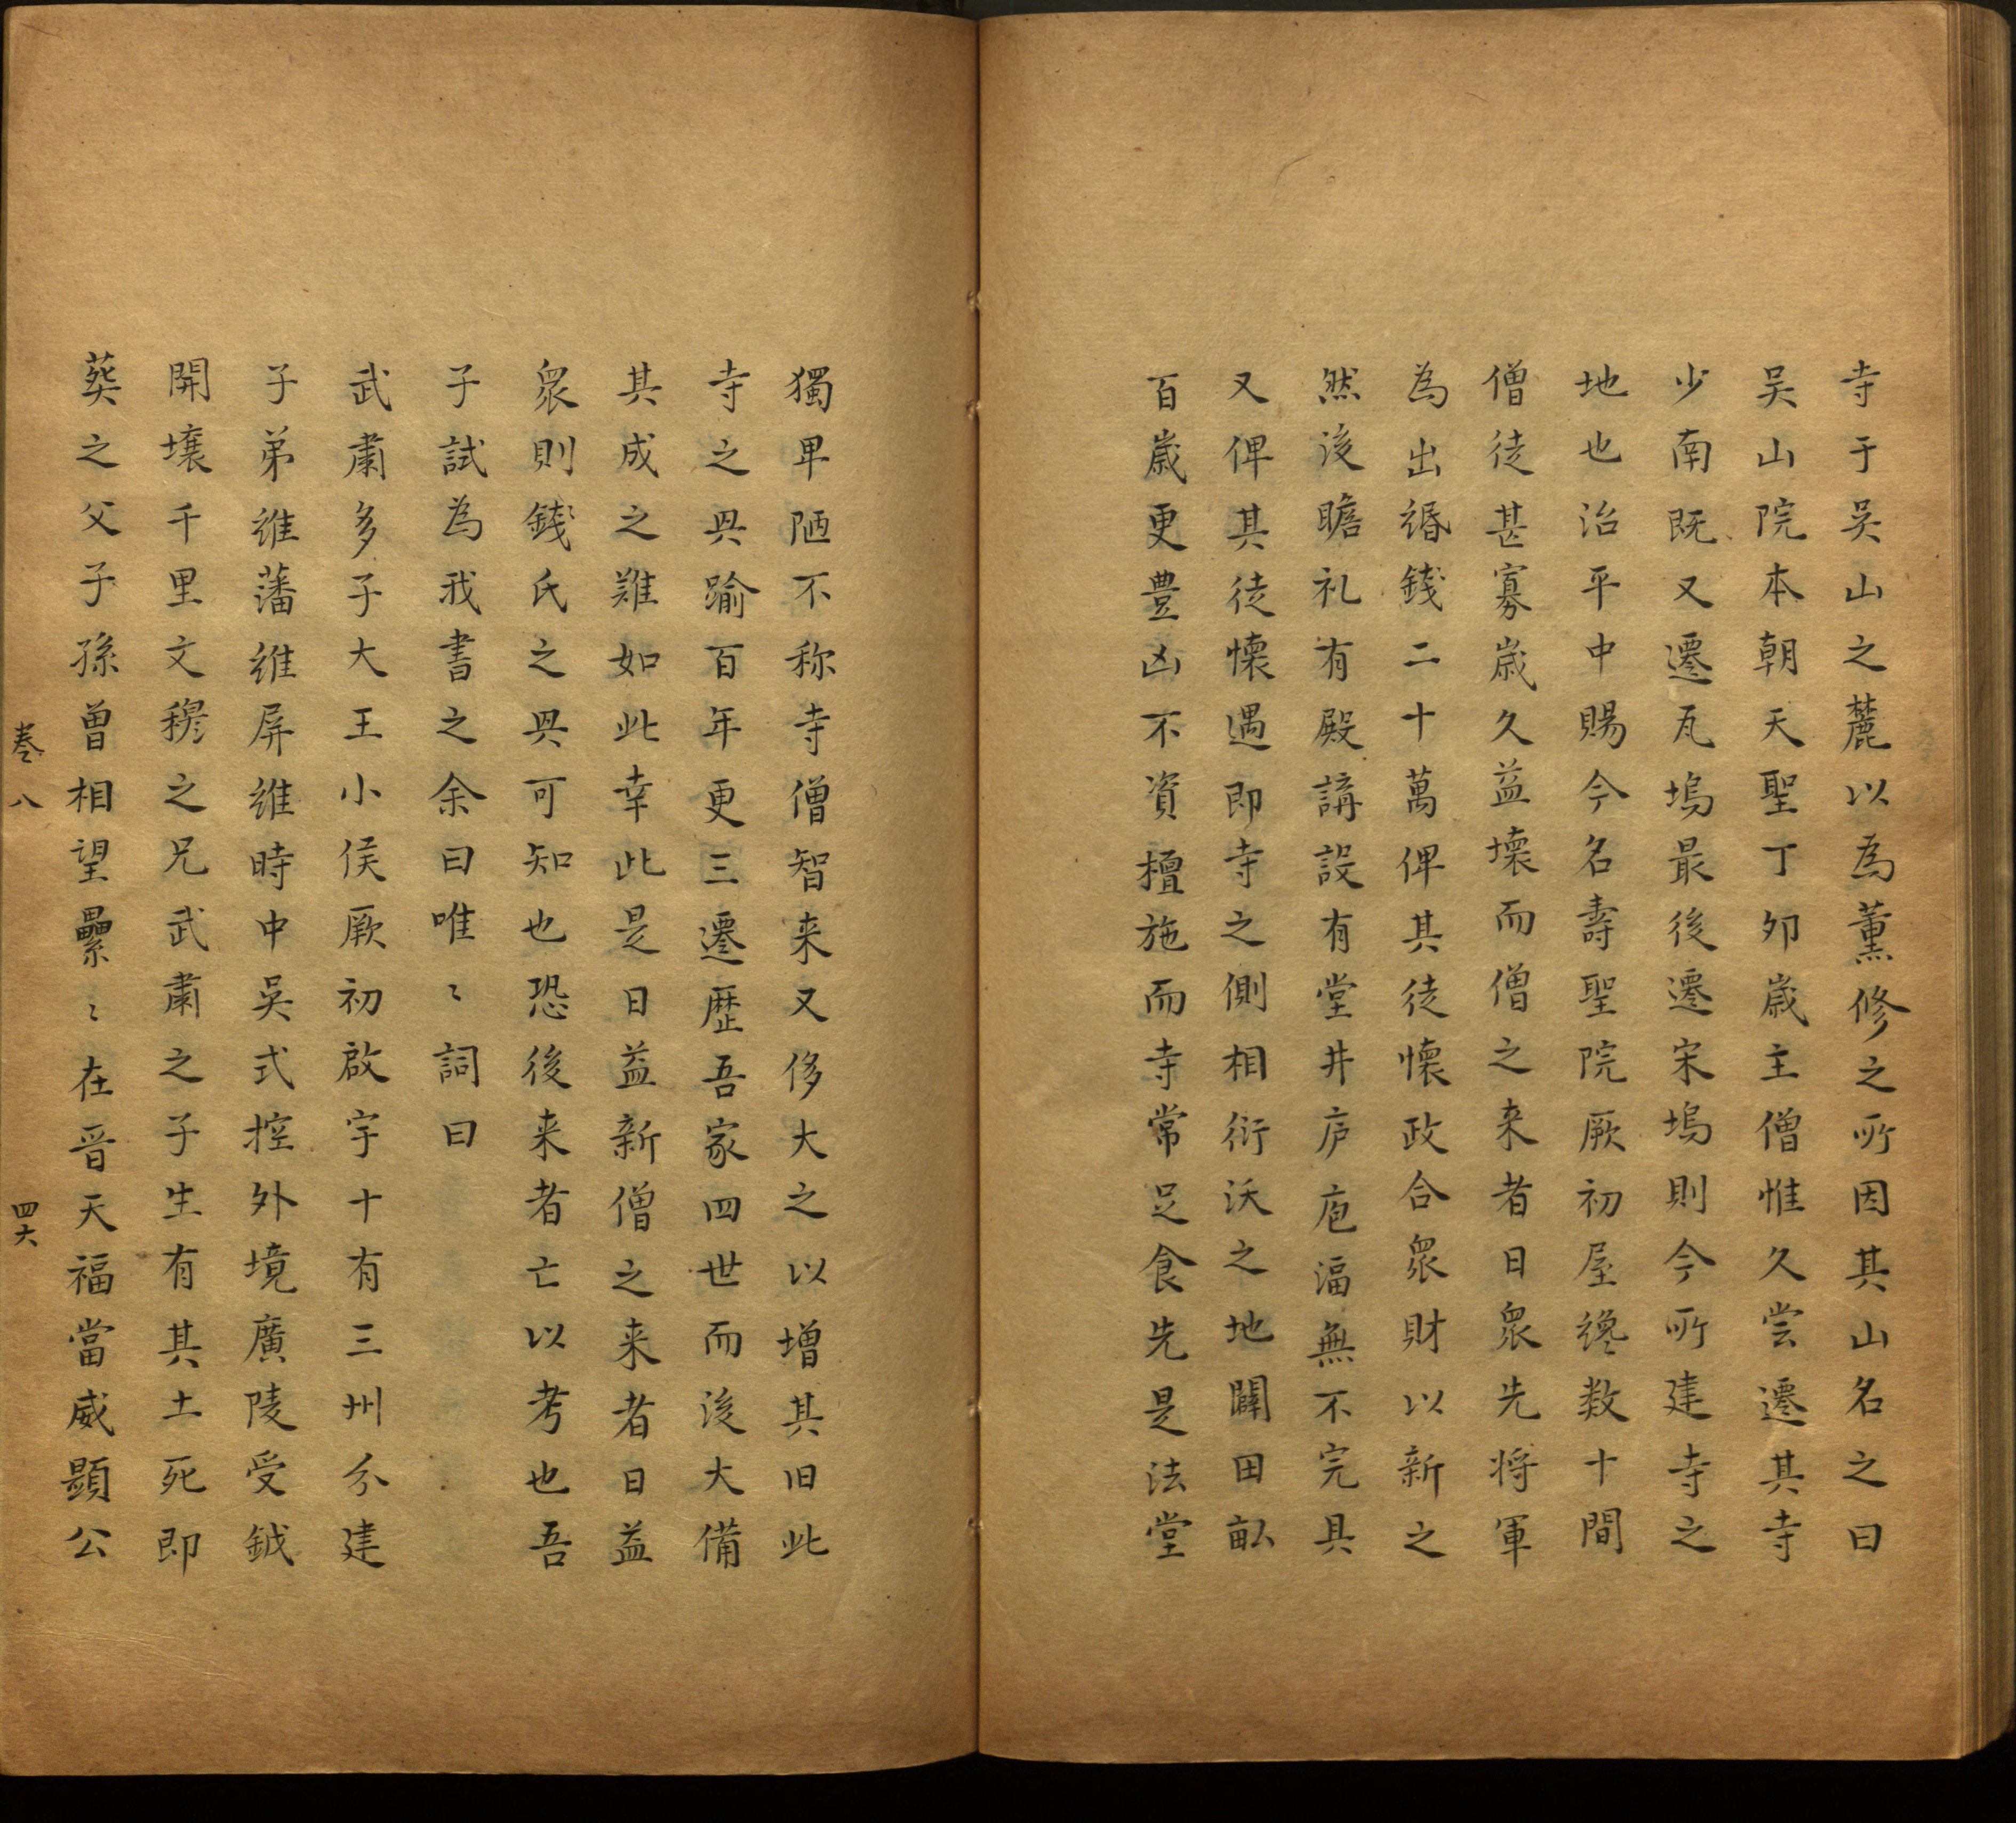 寺于吴山之麓以為薰修之所因其山名之曰
吴山院本朝天聖丁夘嵗主僧惟久嘗遷其寺
少南既又遷瓦塢最後遷宋塢則今所建寺之
地也治平中賜今名壽聖院厥初屋纔数十間
僧徒甚寡嵗久益壊而僧之来者日衆先将軍
為出緡錢二十萬俾其徒懷政合衆財以新之
然後瞻礼有殿講設有堂井庐庖湢無不完具
又俾其徒懷遇即寺之側相衍沃之地闢田畝
百嵗更豊凶不資檀施而寺常足食先是法堂
獨卑陋不称寺僧智来又侈大之以增其旧此
寺之興踰百年更三遷歴吾家四世而後大備
其成之難如此幸此是日益新僧之来者日益
衆則錢氏之興可知也恐後来者亡以考也吾
子試為我書之余曰唯〻詞曰
武肅多子大王小侯厥初啟宇十有三州分建
子弟維藩維屏維時中吴式控外境廣陵受鉞
開壤千里文穆之兄武肅之子生有其土死即
葬之父子孫曾相望纍〻在晋天福當威顯公
卷八
四六